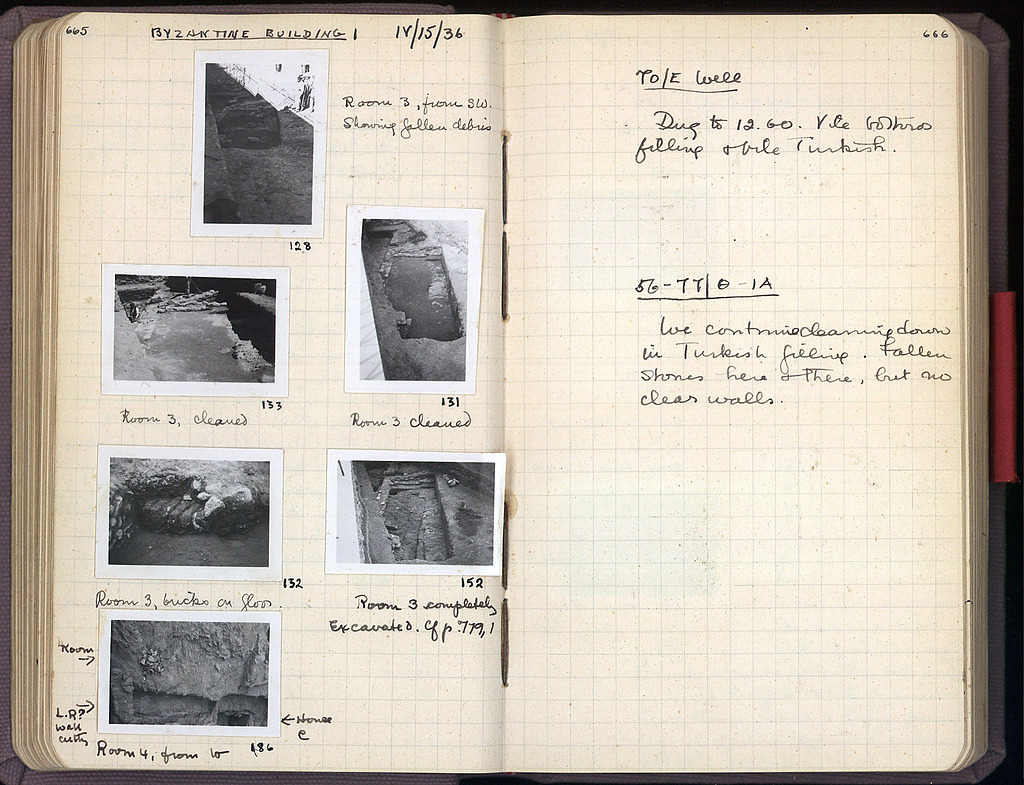 665
BYZANTINE BUILDING 1 IV/15/36
Room 3, from SW.
Showing fallen debris
128
133
Room 3, cleaned
131
Room 3 cleaned
132
Room 3, bricks on floor.
152
Room 3 completely
Excavated. Cf p. 779,1
Room
L.R?
wall
House
C
186
Room 4, from W
666
70/E Well
Dug to 12.60. Vile bothros
filling & vile Turkish.
56-77/Θ-IA
We continue cleaning down
in Turkish filling. Fallen
stones here & there, but no
clear walls.